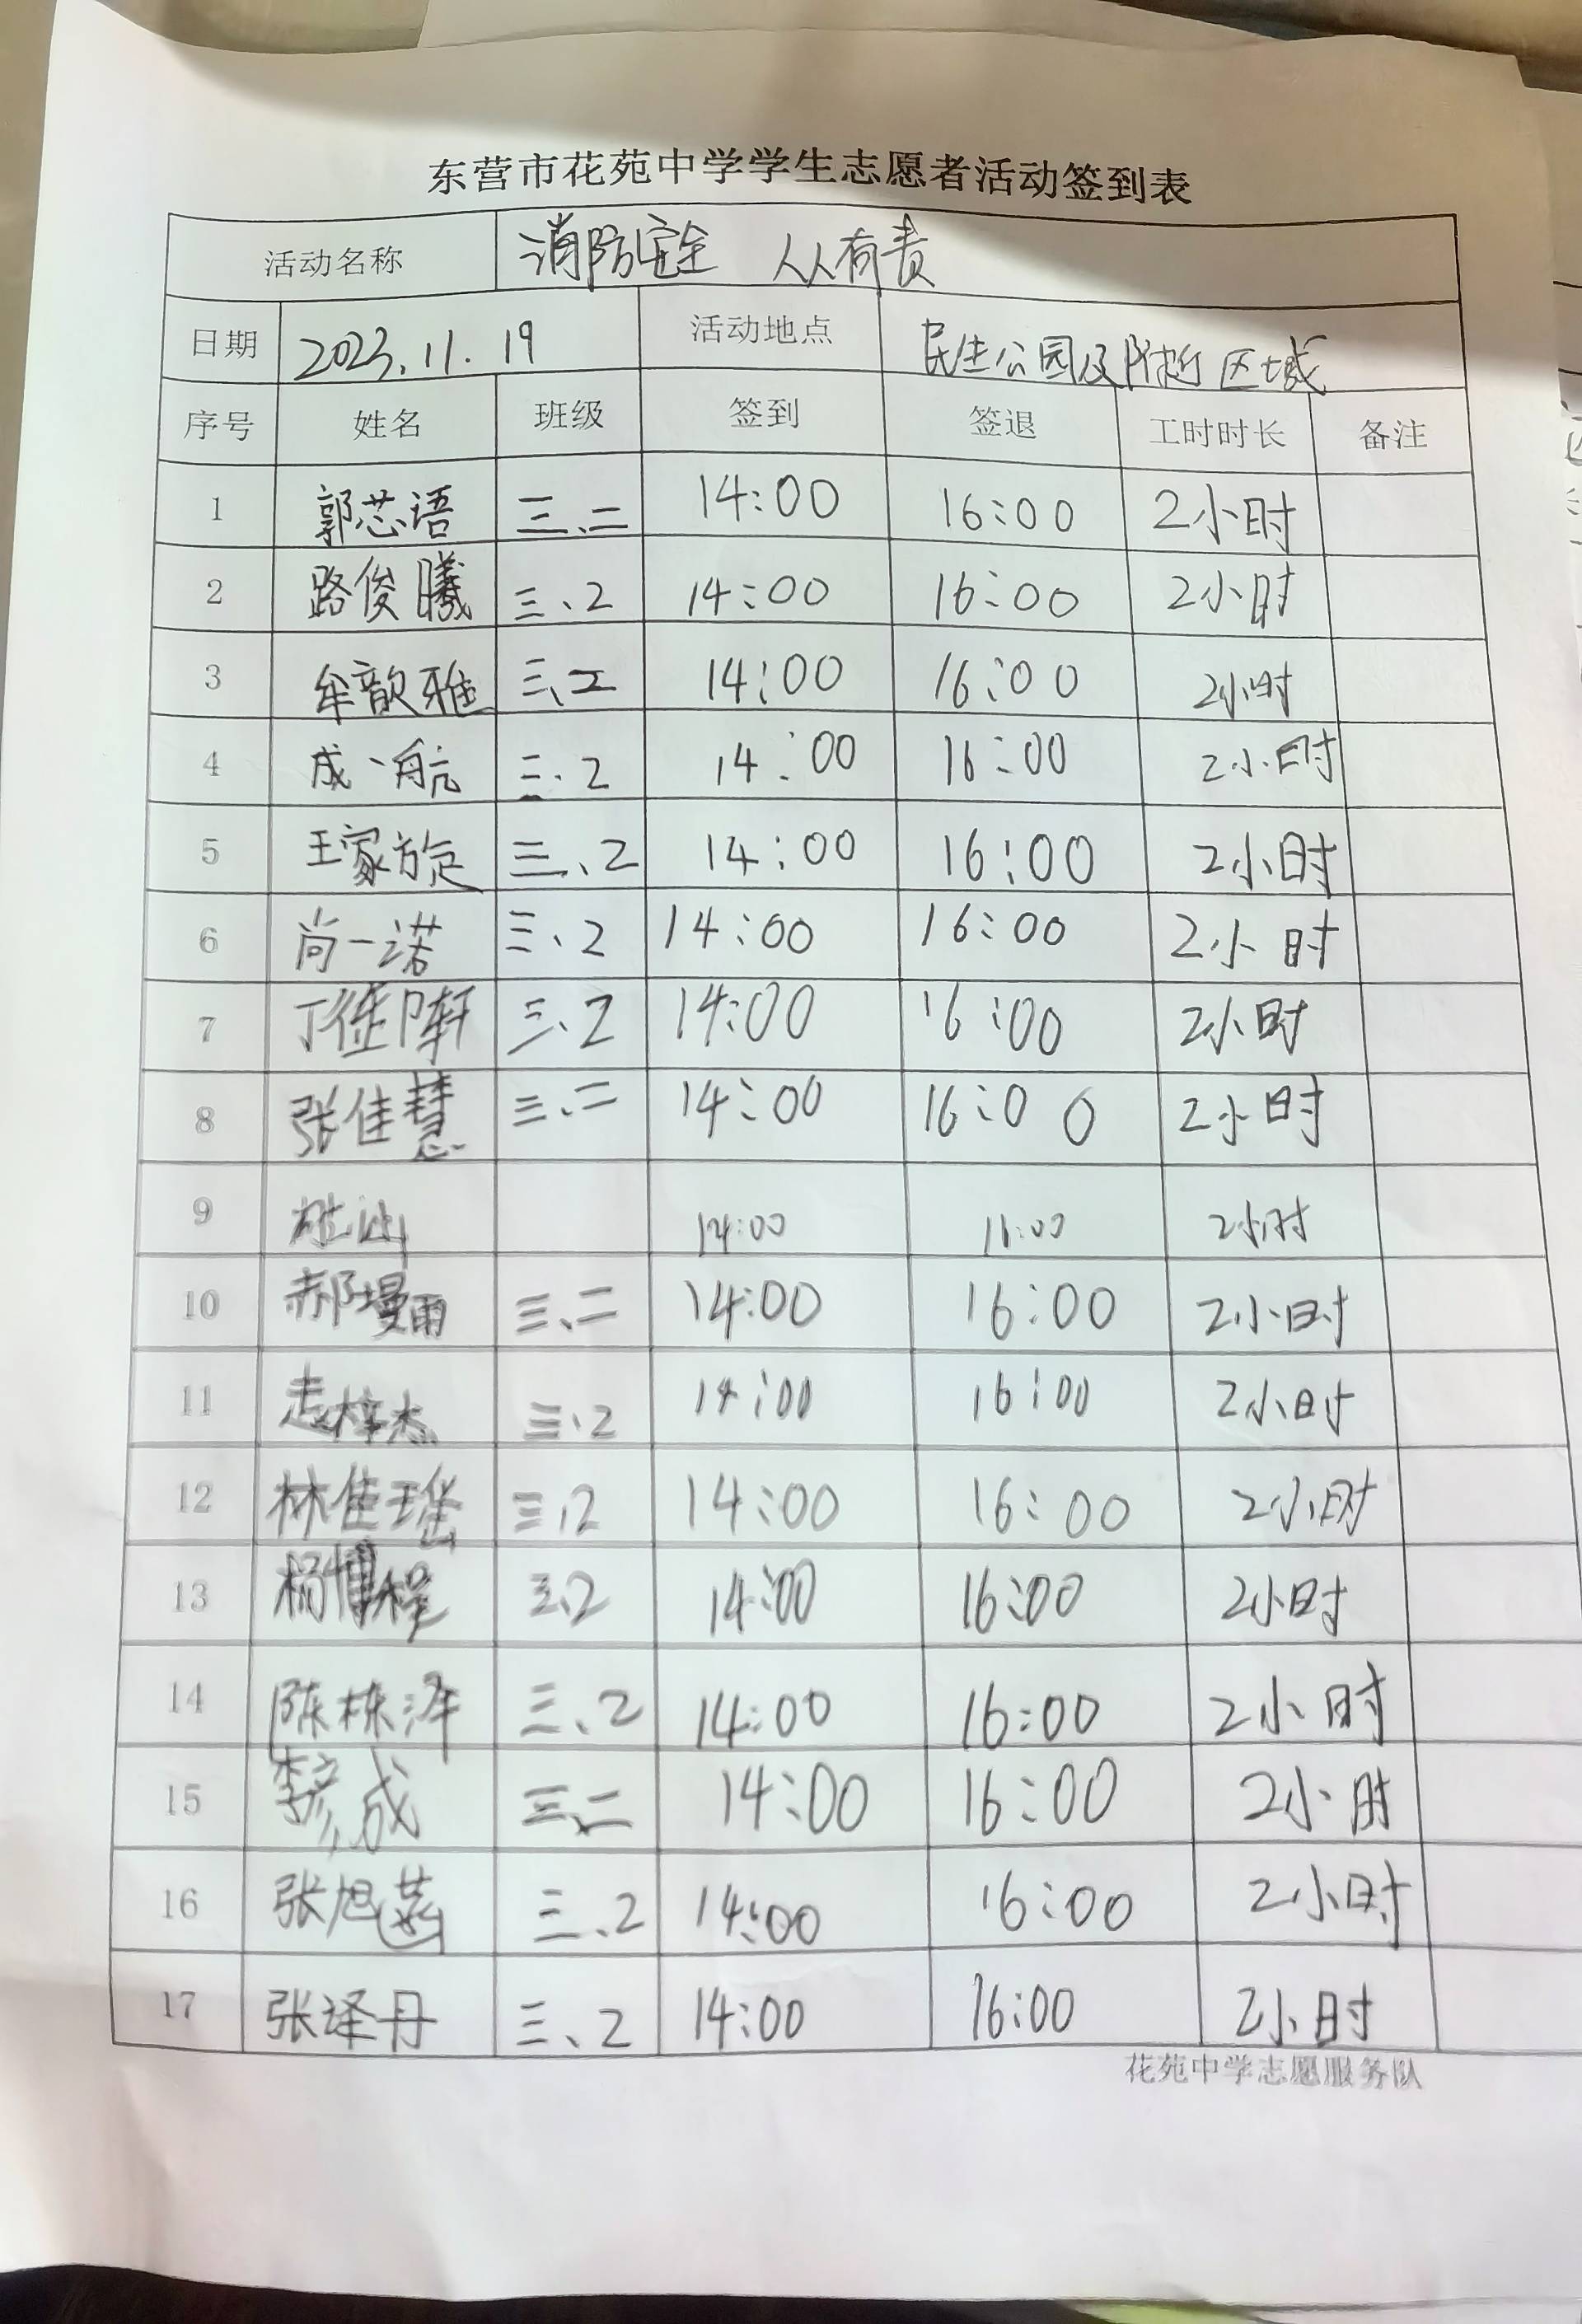 东营市花苑中学学生志愿者活动签到表
活动名称 消防安全 人人有责
日期 2023.11.19 活动地点 民生公园及附近区域
序号 姓名 班级 签到 签退 工时时长 备注
1 郭芯语 三、二 14:00 16:00 2小时
2 路俊曦 三、2 14:00 16:00 2小时
3 牟歆雅 三、二 14:00 16:00 2小时
4 成一航 三、2 14:00 16:00 2小时
5 王家旋 三、2 14:00 16:00 2小时
6 尚一诺 三、2 14:00 16:00 2小时
7 三、2 14:00 16:00 2小时
8 张佳慧 三、二 14:00 16:00 2小时
9 14:00 16:00 2小时
10 郝墁雨 三、二 14:00 16:00 2小时
11 三、2 14:00 16:00 2小时
12 林佳瑶 三、2 14:00 16:00 2小时
13 杨博程 三、2 14:00 16:00 2小时
14 陈栋泽 三、2 14:00 16:00 2小时
15 李彦成 三、二 14:00 16:00 2小时
16 张旭菡 三、2 14:00 16:00 2小时
17 张译丹 三、2 14:00 16:00 2小时
花苑中学志愿服务队